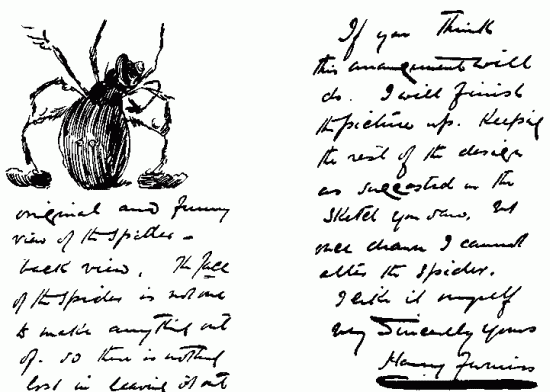 original and funny
view of the Spider –
back view. The face
of the Spider is not one
to make anything out
of. So there is nothing
lost in leaving it out
If you think
this arrangement will
do. I will finish
the picture up. Keeping
the rest of the design
as suggested in the
Sketch you saw, but
once drawn I cannot
alter the Spider.
I like it myself
Very Sincerely yours
Harry Furniss